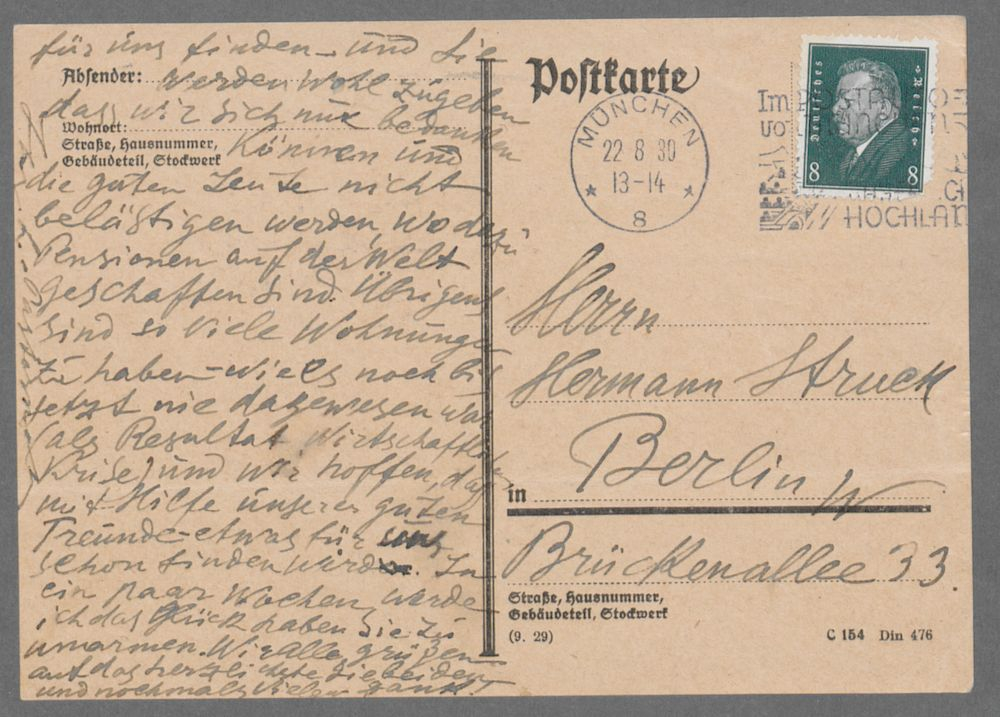 für uns finden – und Sie
Absender: werden wohl zugeben
dass wir sich nur bedanken
Wohnort:
Straße, Hausnummer,
Gebäudeteil, Stockwerk
können und
die guten Leute nicht
belästigen werden, wo dazu
Pensionen auf der Welt
geschaffen sind. Übrigens
sind so viele Wohnungen
zu haben – wie es noch bis
jetzt nie dagewesen war
(als Resultat Wirtschaftlich.
Krise) und wir hoffen, dass
mit Hilfe unserer guten
Freunde – etwas für uns
schon finden wird. In
ein paar Wochen, werde
ich das Glück haben Sie zu
umarmen. Wir alle grüßen
auf das herzlichste die beiden
und nochmals vielen Dank!
Postkarte
MÜNCHEN
22 8 30
13-14
8
Deutsches Reich
8 8
Im
HOCHLAN
Herrn
Hermann Struck
Berlin W
in
Brückenallee 33
Straße, Hausnummer,
Gebäudeteil, Stockwerk
(9. 29)
C 154 Din 476